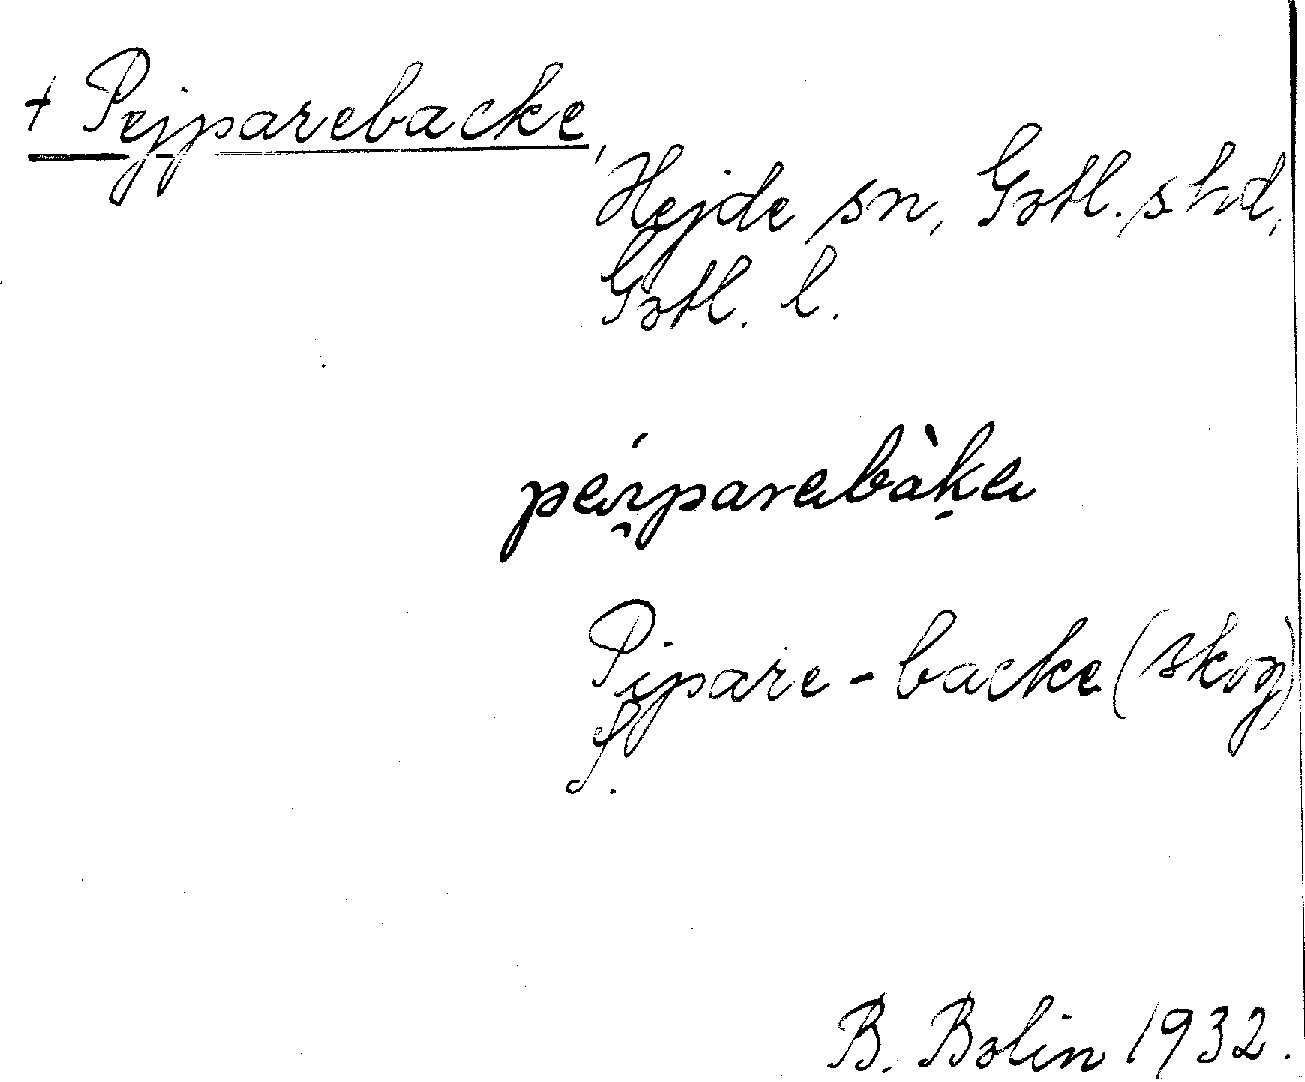 + Pejparebacke,
Hejde sn, Gotl. s. hd,
Gotl. l.
päɪ̯parabàka
Pipare-backe (skog)
f.
B. Bolin 1932.